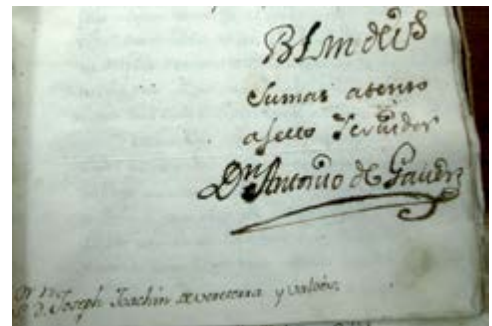 BLM de Vs
Su mas atento
afecto Servidor
Dn Antonio de
D. Joseph Joachin de vereterra y valdés